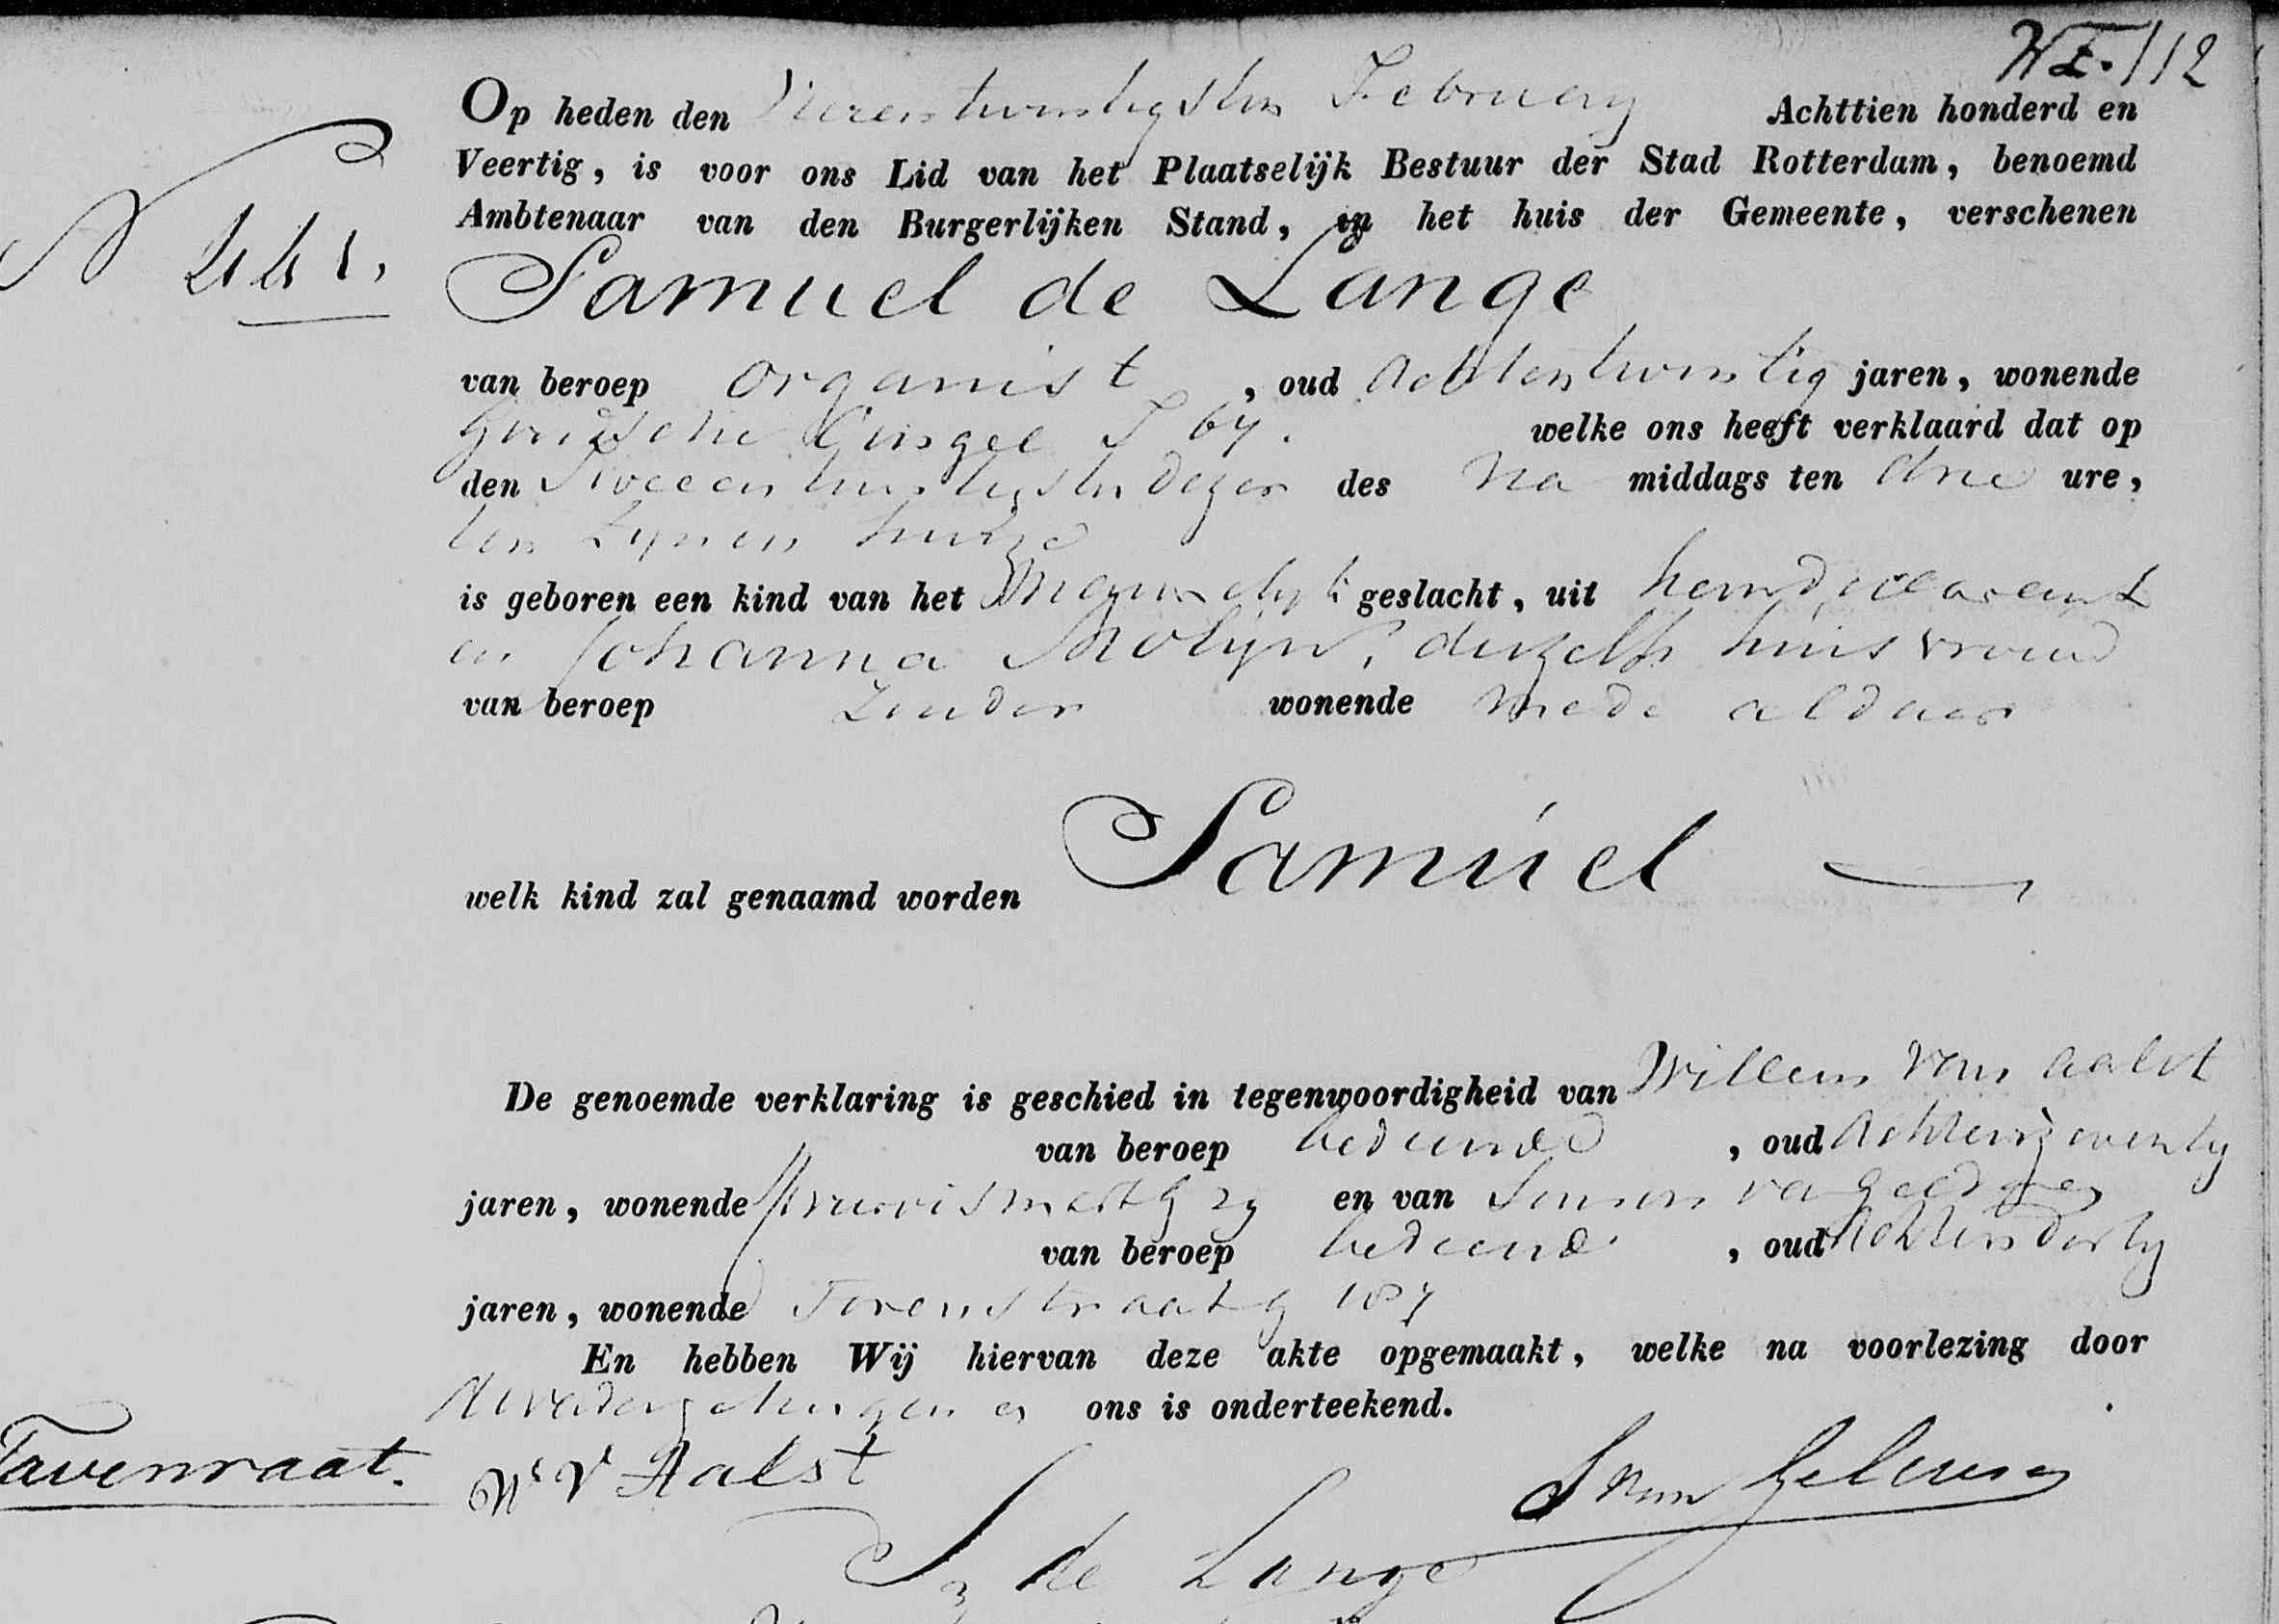 112
Op heden den Vierentwintigsten February Achttien honderd en
Veertig, is voor ons Lid van het Plaatselijk Bestuur der Stad Rotterdam, benoemd
Ambtenaar van den Burgerlijken Stand, in het huis der Gemeente, verschenen
N 441.
Samuel de Lange
van beroep organist, oud Achtentwintig jaren, wonende
Goudsche Cingel welke ons heeft verklaard dat op
den Tweeentwintigsten dezer des na middags ten drie ure,
ten zynen huize
is geboren een kind van het Mannelyk geslacht, uit hem declarant
en Johanna Molijn, deszelfs huisvrouw
van beroep zonder wonende mede aldaar
welk kind zal genaamd worden Samuel
De genoemde verklaring is geschied in tegenwoordigheid van Willem van Aalst
van beroep bediende, oud Achtenzeventig
jaren, wonende en van Simon van
van beroep bediende, oud Achtendertig
jaren, wonende Torenstraat G 187
En hebben Wij hiervan deze akte opgemaakt, welke na voorlezing door
de vader getuigen en ons is onderteekend.
Tavenraat.
W V Aalst
S van
S de Lange